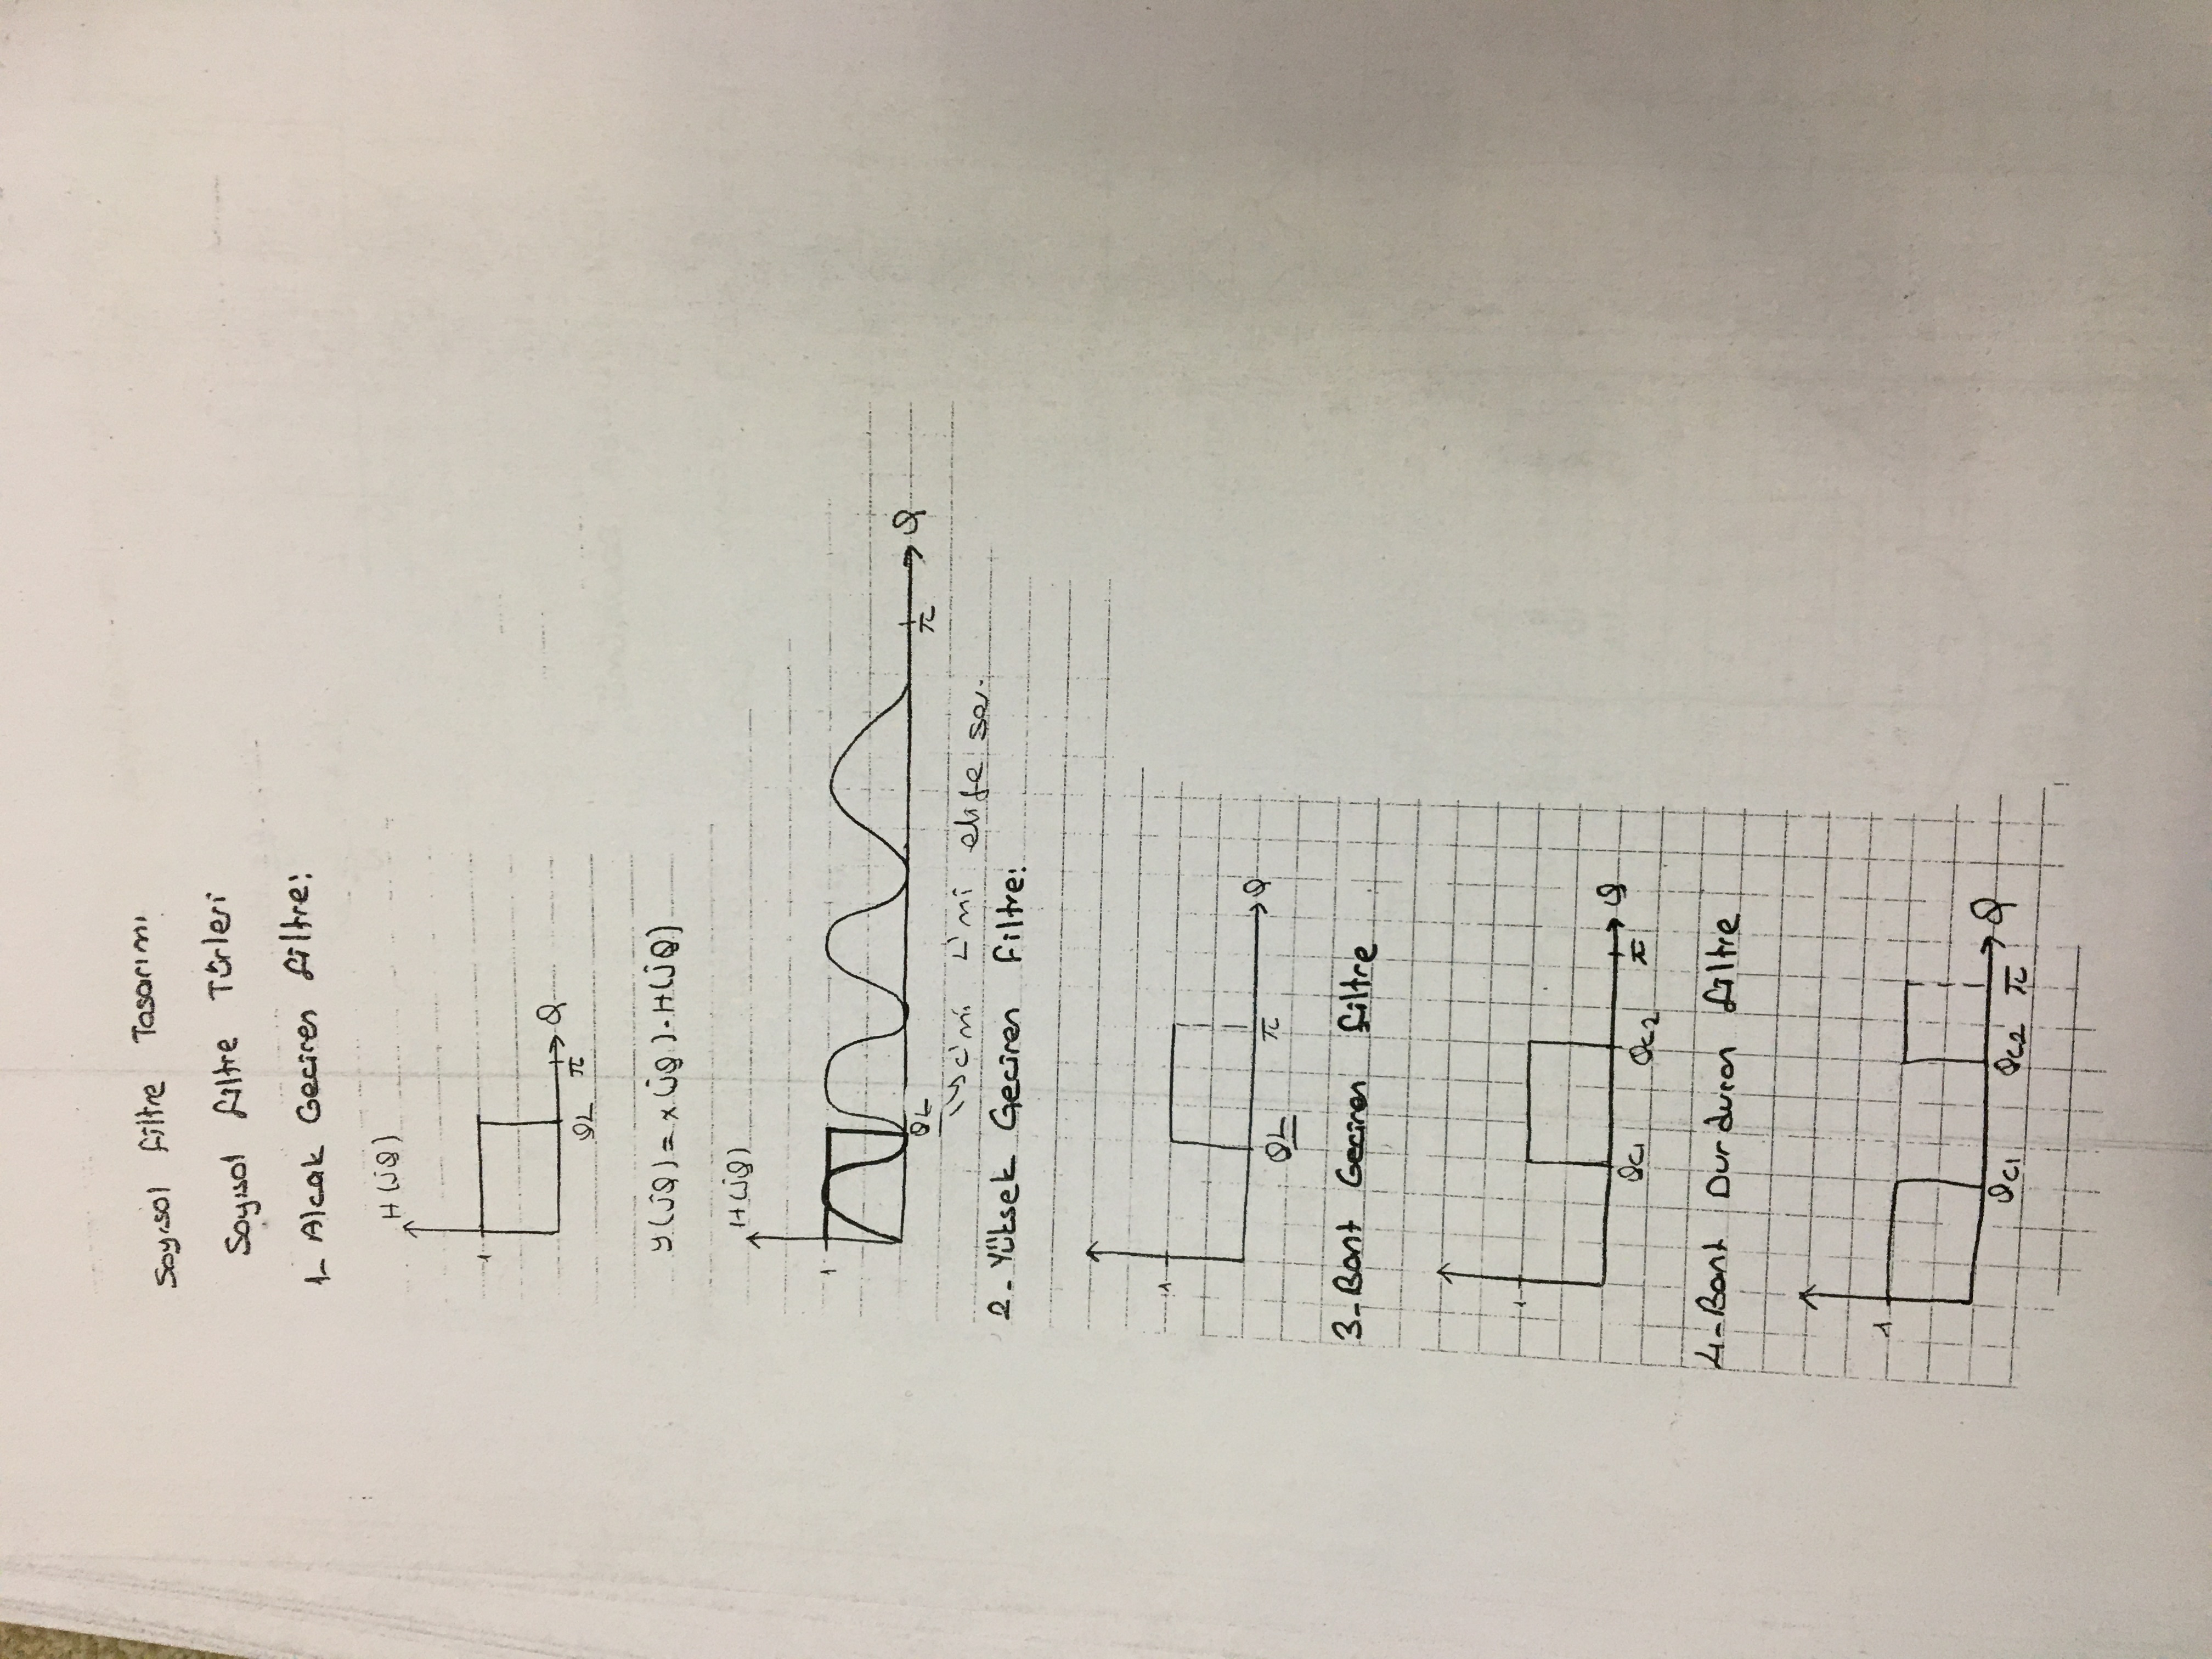 Sayısal filtre Tasarımı
Sayısal filtre Türleri
1- Alcak Geciren filtre:
H(jθ)
1
θ
θL π
y(jθ)=x(jθ).H(jθ)
H(jθ)
1
θ
θL π
L'mi elife sor.
2-Yüksek Geciren Filtre:
1
θ
θL π
3-Bant Geciren filtre
1
θ
θc1 θc2 π
4-Bant Durduran filtre
1
θ
θc1 θc2 π